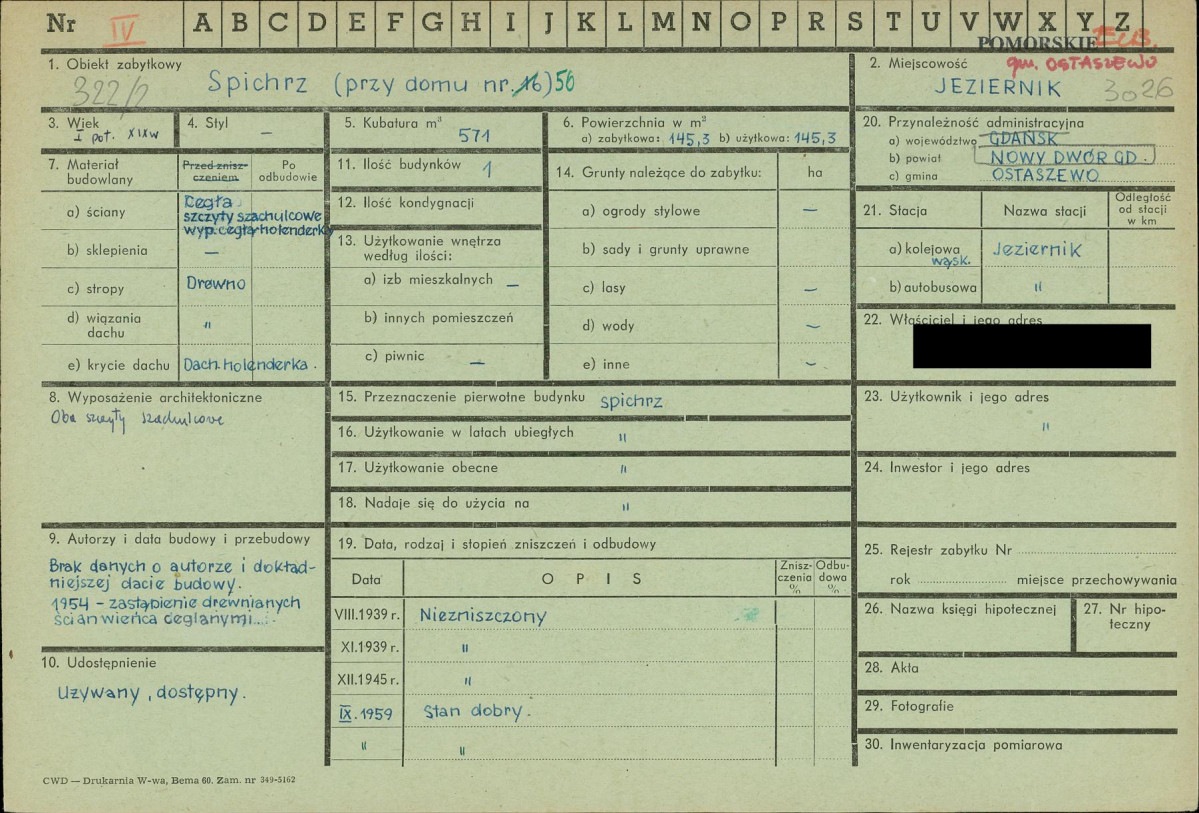 Nr IV A B C D E F G H I J K L M N O P R S T U V W X Y Z
POMORSKIE
gm. OSTASZEWO
1. Obiekt zabytkowy
322/2
Spichrz (przy domu nr. 16) 50
2. Miejscowość
JEZIERNIK 3026
3. Wiek
I poł. XIXw
4. Styl
—
5. Kubatura m³
571
6. Powierzchnia w m²
a) zabytkowa: 145,3 b) użytkowa: 145,3
20. Przynależność administracyjna
a) województwo GDAŃSK
b) powiat NOWY DWÓR GD.
c) gmina OSTASZEWO
7. Materiał budowlany
Przed zniszczeniem
Po odbudowie
a) ściany
Cegła
szczyty szachulcowe
wyp. cegłą holenderką
b) sklepienia —
c) stropy Drewno
d) wiązania dachu "
e) krycie dachu Dach. holenderka.
11. Ilość budynków 1
12. Ilość kondygnacji
13. Użytkowanie wnętrza
według ilości:
a) izb mieszkalnych —
b) innych pomieszczeń
c) piwnic —
14. Grunty należące do zabytku: ha
a) ogrody stylowe —
b) sady i grunty uprawne
c) lasy —
d) wody —
e) inne —
21. Stacja
Nazwa stacji
Odległość od stacji w km
a) kolejowa wąsk. Jeziernik
b) autobusowa "
22. Właściciel i jego adres
8. Wyposażenie architektoniczne
Oba szczyty szachulcowe
15. Przeznaczenie pierwotne budynku spichrz
16. Użytkowanie w latach ubiegłych "
17. Użytkowanie obecne "
18. Nadaje się do użycia na "
23. Użytkownik i jego adres
"
24. Inwestor i jego adres
9. Autorzy i data budowy i przebudowy
Brak danych o autorze i dokład-
niejszej dacie budowy.
1954 – zastąpienie drewnianych
ścian wieńca ceglanymi...
19. Data, rodzaj i stopień zniszczeń i odbudowy
Data
OPIS
Znisz-
czenia
%
Odbu-
dowa
%
VIII.1939 r. Niezniszczony
XI.1939 r. "
XII.1945 r. "
IX.1959 Stan dobry.
" "
25. Rejestr zabytku Nr
rok miejsce przechowywania
26. Nazwa księgi hipotecznej
27. Nr hipo-
teczny
10. Udostępnienie
Używany, dostępny.
28. Akta
29. Fotografie
30. Inwentaryzacja pomiarowa
CWD — Drukarnia W-wa, Bema 60. Zam. nr 349-5162